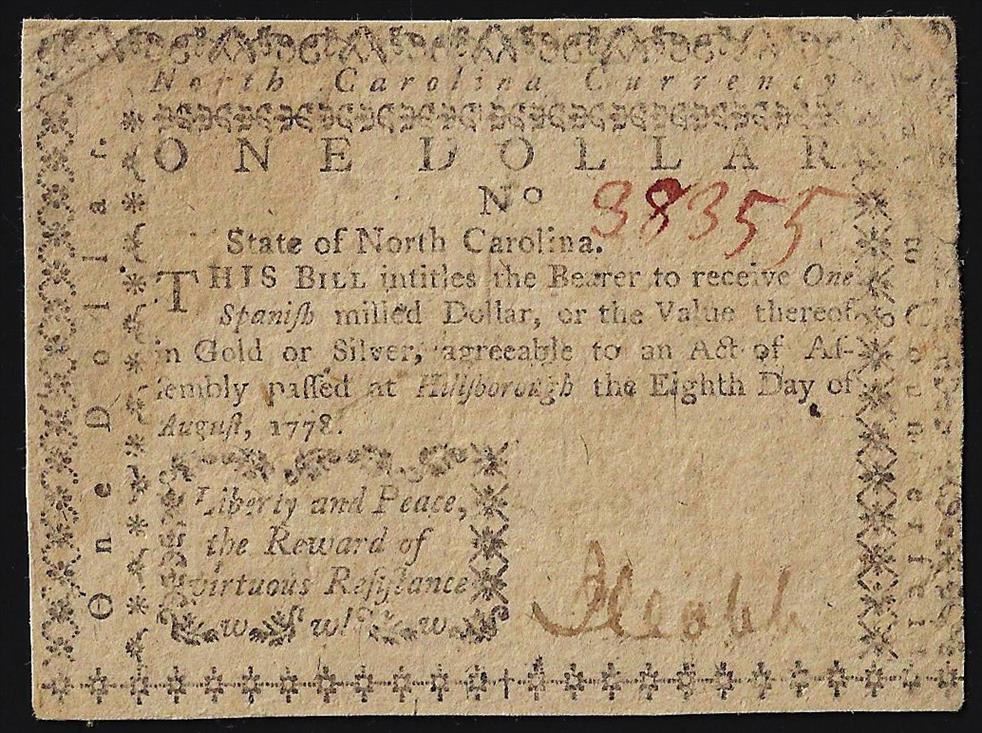 North Carolina Currency
ONE DOLLAR
No 38355
State of North Carolina.
THIS BILL intitles the Bearer to receive One
Spaniſh milled Dollar, or the Value thereof
in Gold or Silver, agreeable to an Act of Aſ-
ſembly paſſed at Hillſborough the Eighth Day of
Auguſt, 1778.
Liberty and Peace,
the Reward of
virtuous Reſiſtance
w w! w
One Dollar.